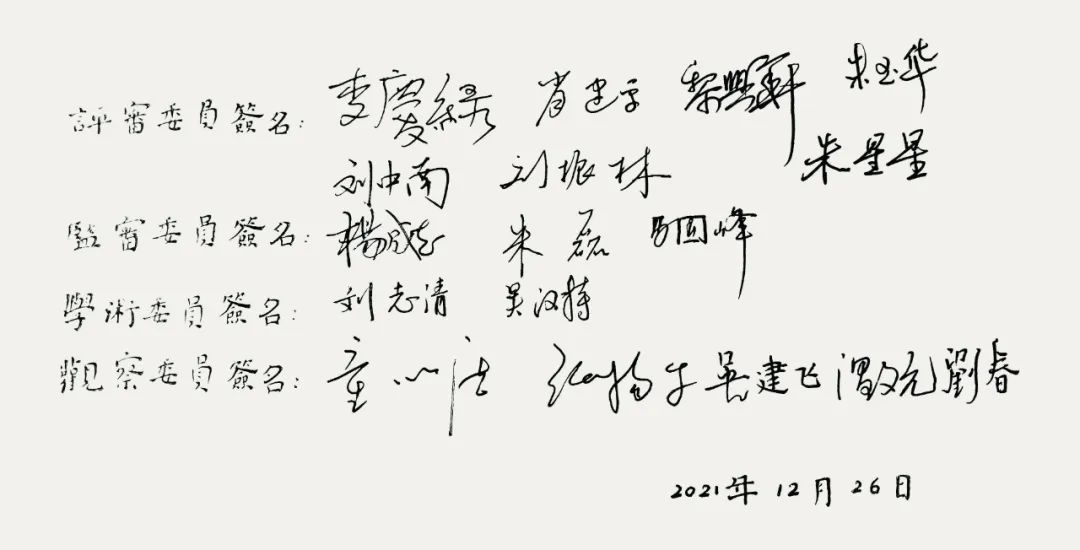 評審委員簽名: 李慶緑 肖建宇 黎興軒 朱玉华
刘中南 刘振林 朱星星
監審委員簽名: 楊斌 朱磊 马国峰
學術委員簽名: 刘志清 吴汉特
觀察委員簽名: 童心 吴建飞 劉春
2021年12月26日